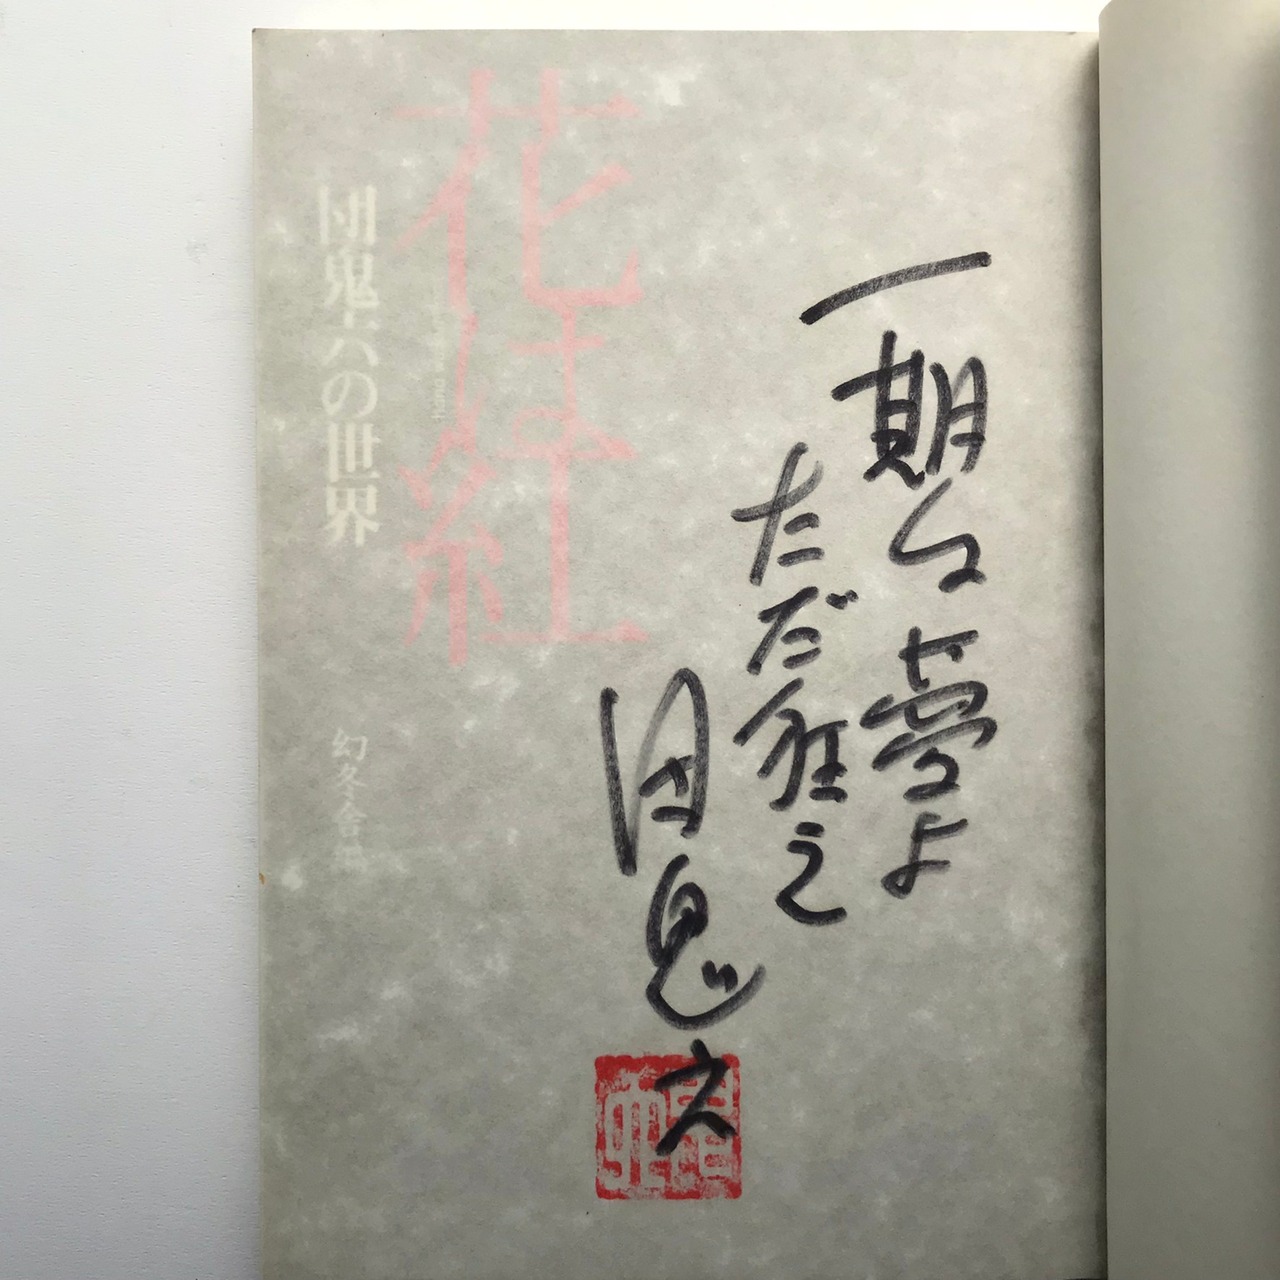 一期は夢よ
ただ狂え
団鬼六
花は紅
団鬼六の世界
幻冬舎